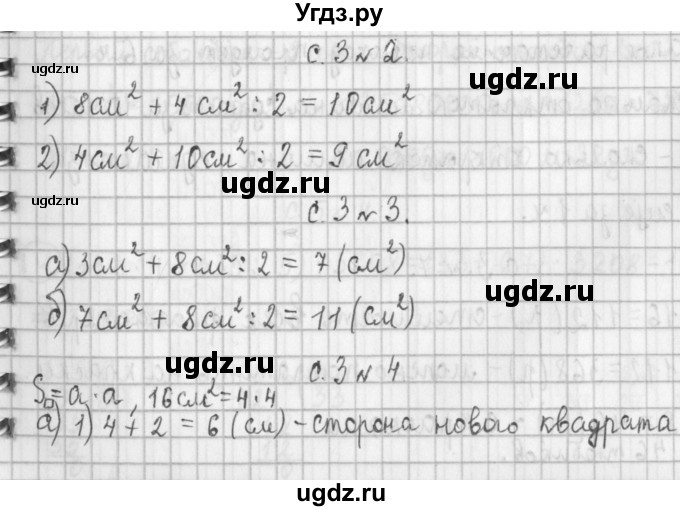 Угдз.ру
с. 3 № 2.
ugdz.ru ugdz.ru
1) 8 см² + 4 см² : 2 = 10 см²
2) 4 см² + 10 см² : 2 = 9 см²
ugdz.ru
ugdz.ru с. 3 № 3. ugdz.ru
а) 3 см² + 8 см² : 2 = 7 (см²)
б) 7 см² + 8 см² : 2 = 11 (см²)
ugdz.ru
с. 3 № 4
S□ = a · a , 16 см² = 4 · 4
а) 1) 4 + 2 = 6 (см) - сторона нового квадрата
ugdz.ru ugdz.ru
ugdz.ru